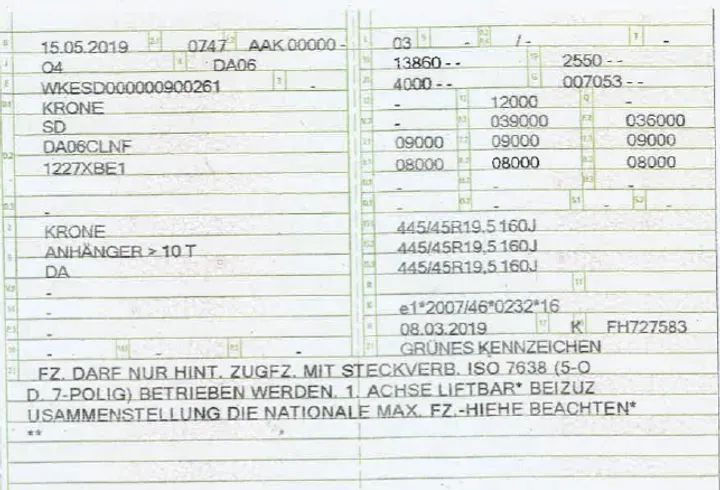 15.05.2019 0747 AAK 00000 -
04 DA06
WKESD000000900261 -
KRONE
SD
DA06CLNF
1227XBE1
-
-
KRONE
ANHÄNGER > 10 T
DA
-
-
-
- - -
03 - / - -
13860 - - 2550 - -
4000 - - 007053 - -
- 12000 -
- 039000 036000
09000 09000 09000
08000 08000 08000
- - -
- - - -
445/45R19,5 160J
445/45R19,5 160J
445/45R19,5 160J
-
e1*2007/46*0232*16
08.03.2019 K FH727583
GRÜNES KENNZEICHEN
FZ. DARF NUR HINT. ZUGFZ. MIT STECKVERB. ISO 7638 (5-O
D. 7-POLIG) BETRIEBEN WERDEN. 1. ACHSE LIFTBAR* BEIZUZ
USAMMENSTELLUNG DIE NATIONALE MAX. FZ.-HIEHE BEACHTEN*
** *